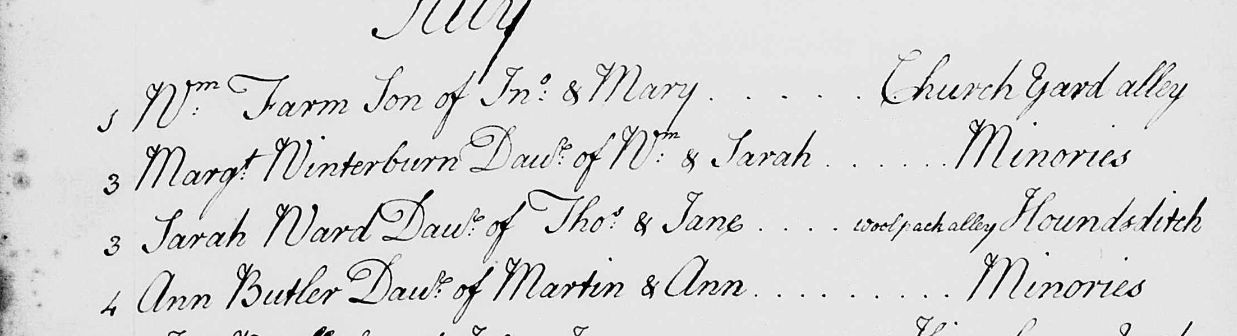 July
1 Wm. Farm Son of Jno. & Mary . . . . . . Church Yard alley
3 Margt. Winterburn Daur. of Wm. & Sarah . . . . . . . Minories
3 Sarah Ward Daur. of Thos. & Jane . . . . woolpack alley Houndsditch
4 Ann Butler Daur. of Martin & Ann . . . . . . . . . . Minories